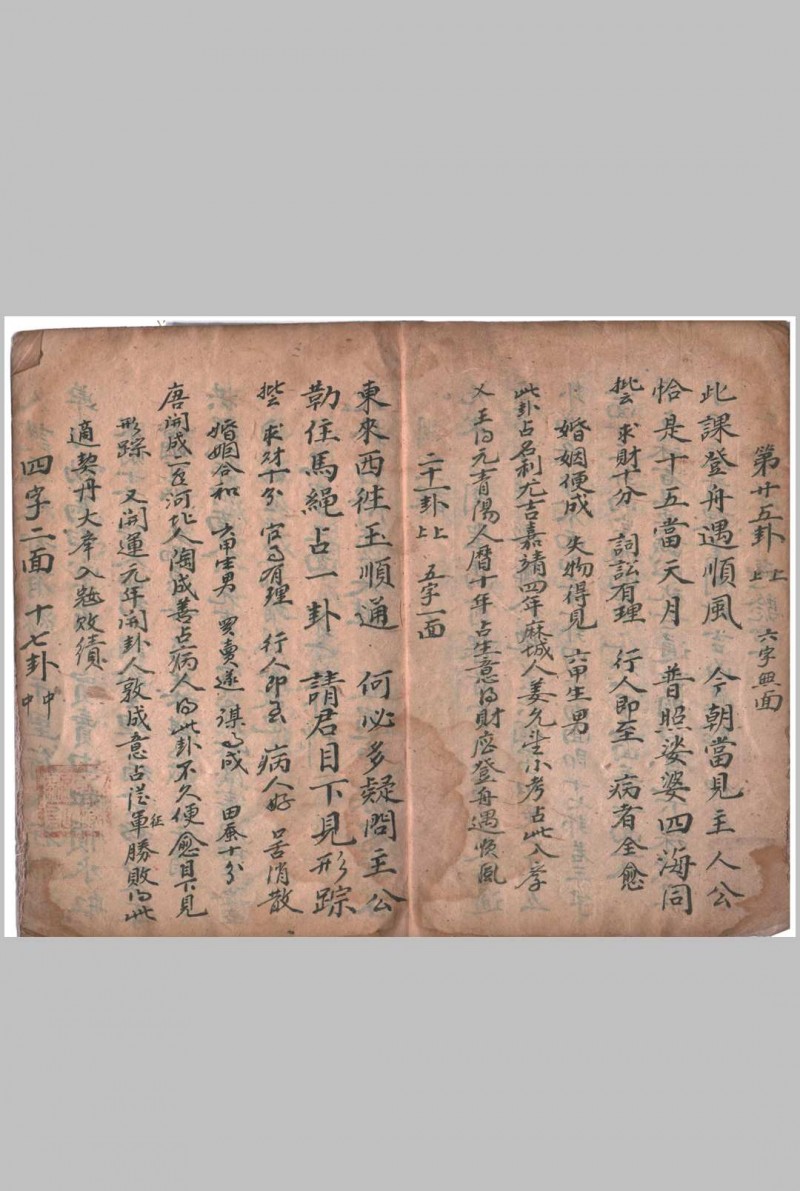 第廿五卦 上上 六字無面
此課登舟遇順風 今朝當見主人公
恰是十五當天月 普照娑婆四海同
批云 求財十分 詞訟有理 行人即至 病者全愈
婚姻便成 失物得見 六甲生男
此卦占名利尤吉嘉靖四年麻城人姜允 小考占此入學
又王 元青陽人曆十年占生意得財應登舟遇順風
二十一卦 上上 五字一面
東來西往玉順通 何必多疑問主公
勒住馬繩占一卦 請君目下見形踪
批 求財十分 官司有理 行人即至 病人好 口舌消散
婚姻合和 六甲生男 買賣遂 謀事成 田蚕十分
唐開成 河北人陶成善占病人得此卦不久便愈目下見
形踪 又開運元年開卦人敦成意占從征軍勝敗得此
適契丹大 入 敗績
四字二面 十七卦 中中